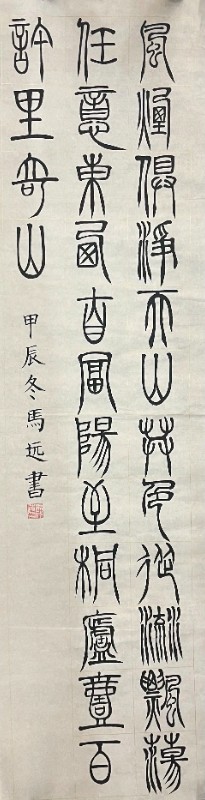 風煙俱淨天山共色從流飄蕩
任意東西自富陽至桐廬壹百
許里奇山
甲辰冬馬远書